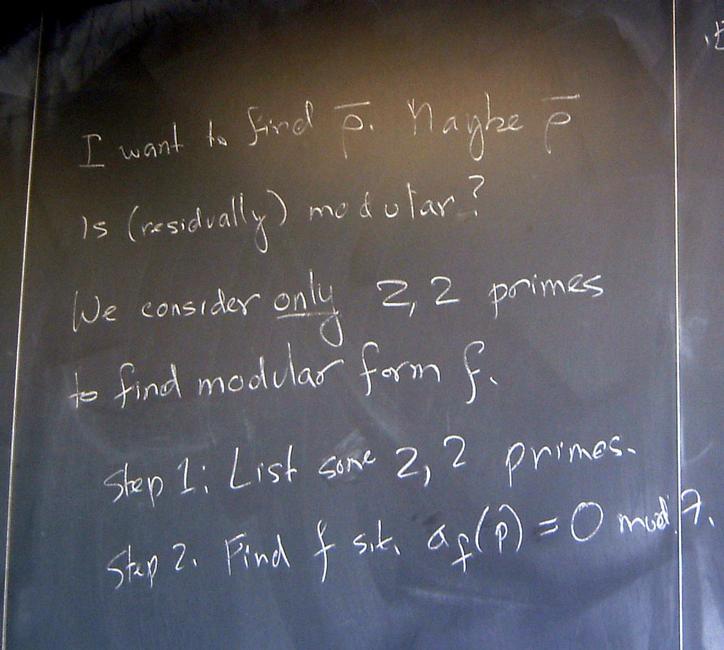 I want to find ρ̄. Maybe ρ̄
Is (residually) modular?
We consider only 2,2 primes
to find modular form f.
Step 1: List some 2,2 primes.
Step 2. Find f s.t. a_f(p) = 0 mod 7.